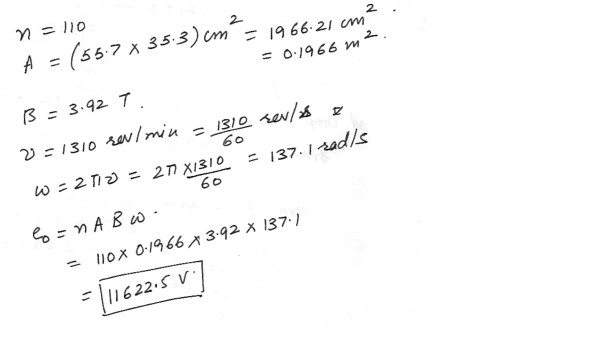 n = 110
A = (55.7 × 35.3) cm² = 1966.21 cm².
= 0.1966 m².
B = 3.92 T.
ν = 1310 rev/min = 1310/60 rev/s
ω = 2πν = 2π × 1310/60 = 137.1 rad/s
e₀ = n A B ω.
= 110 × 0.1966 × 3.92 × 137.1
= 11622.5 V.